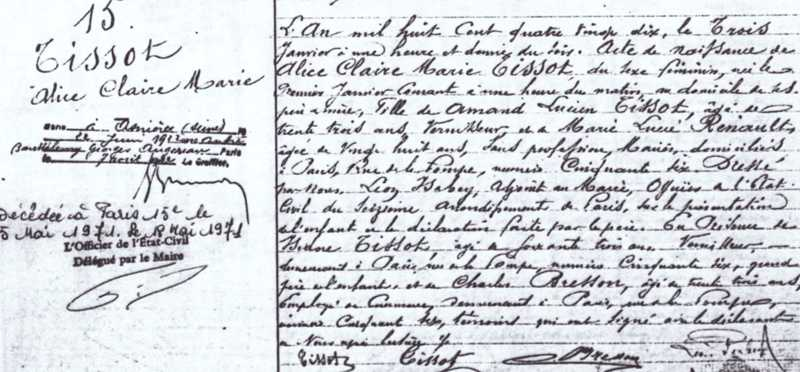 15.
Tissot
Alice Claire Marie
à Asnières (Seine)
Barthélemy Georges
Paris
Le Greffier
Décédée à Paris 15e le
5 Mai 1971. le 8 Mai 1971
L'Officier de l'État-Civil
Délégué par le Maire
L'An mil huit cent quatre vingt dix, le Trois
Janvier à une heure et demie du soir. Acte de naissance de
Alice Claire Marie Tissot, du sexe féminin, née le
Premier Janvier Courant à une heure du matin, au domicile de ses
père et mère, Fille de Amand Lucien Tissot, âgé de
trente trois ans, Vernisseur, et de Marie Lucie Renault
âgée de Vingt huit ans, Sans profession, Mariés, domiciliés
à Paris, Rue de la Pompe, numéro Cinquante six Dressé
par Nous Léon Adjoint au Maire, Officier de l'État
Civil du Seizième Arrondissement de Paris, sur la présentation
de l'enfant et la déclaration faite par le père. En Présence de
Tissot âgé de soixante trois ans, Vernisseur
demeurant à Paris, rue de la Pompe, numéro Cinquante six, grand
père de l'enfant, et de Charles Bresson, âgé de trente trois ans,
Employé de Commerce, demeurant à Paris, rue de la Pompe,
numéro Cinquante six, témoins qui ont signé avec le déclarant
et Nous après lecture
Tissot Tissot Bresson